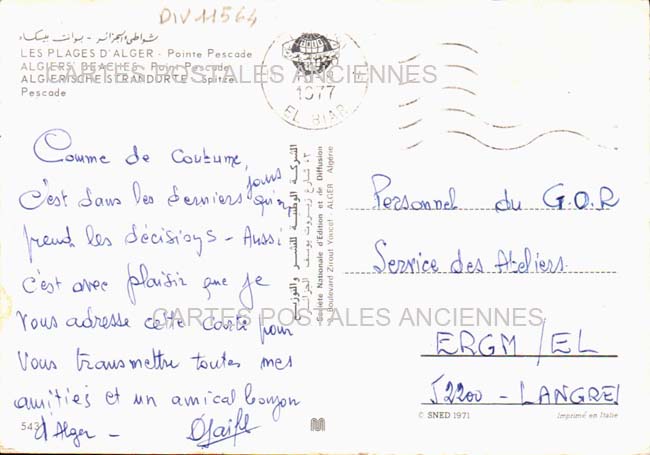 DIV 11564
شواطئ الجزائر - بوانت بيسكاد
LES PLAGES D'ALGER - Pointe Pescade
ALGIERS BEACHES - Point Pescade
ALGERISCHE STRANDORTE - Spitze
Pescade
1977
EL BIAR
CARTES POSTALES ANCIENNES
Comme de coutume,
c'est dans les derniers jours qu'on
prend les décisions - Aussi
c'est avec plaisir que je
vous adresse cette carte pour
vous transmettre toutes mes
amitiés et un amical bonjour
d'Alger -
543
الشركة الوطنية للنشر والتوزيع
٣، شارع زيروت يوسف - الجزائر
Société Nationale d'Edition et de Diffusion
3, Boulevard Zirout Youcef - ALGER - Algérie
Personnel du G.O.R
Service des Ateliers.
CARTES POSTALES ANCIENNES
ERGM/EL
52200 - LANGRES
© SNED 1971
Imprimé en Italie